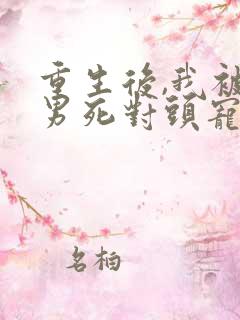 重生後,我被
男死對頭寵
名柏